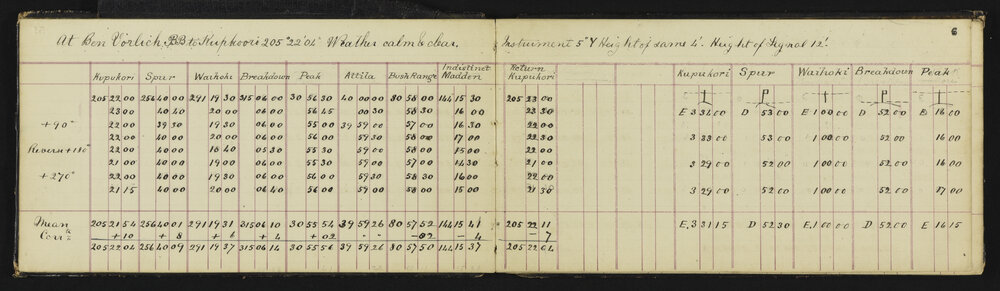 6
At Ben Vorlich to Kupukori 205° 22' 04" Weather calm & clear. Instrument 5" Y Height of same 4'. Height of Signal 12'.
Kupukori Spur Waihoki Breakdown Peak Attila Bush Range Indistinct Madden Return Kupukori Kupukori Spur Waihoki Breakdown Peak
205 22 00 256 40 00 291 19 30 315 06 00 30 56 30 40 00 00 80 58 00 144 15 30 205 23 00
23 00 40 40 20 00 06 00 56 45 00 30 58 30 16 00 23 30 E 3 31 00 D 53 00 E 1 00 00 D 52 00 E 16 00
+90° 22 00 39 30 19 30 06 00 55 00 39 59 00 57 00 16 30 22 00
22 00 40 00 20 00 06 00 56 00 59 30 58 00 17 00 22 30 3 33 00 53 00 1 00 00 52 00 16 00
Revern +180° 22 00 40 00 18 40 05 30 55 30 59 00 58 00 15 00 22 00
21 00 40 00 19 00 06 00 55 30 59 00 57 00 14 30 21 00 3 29 00 52 00 1 00 00 52 00 16 00
+270° 22 00 40 00 19 30 06 40 56 00 59 30 58 30 16 00 22 00
21 15 40 00 20 00 06 40 56 00 59 00 58 00 15 00 21 30 3 29 00 52 00 1 00 00 52 00 17 00
Mean 205 21 54 256 40 01 291 19 31 315 06 10 30 55 54 39 59 26 80 57 52 144 15 41 205 22 11 E 3 31 15 D 52 30 E 1 00 00 D 52 00 E 16 15
Corrn +10 +8 +6 +4 +02 - - -02 -4 -7
205 22 04 256 40 09 291 19 37 315 06 14 30 55 56 39 59 26 80 57 50 144 15 37 205 22 04